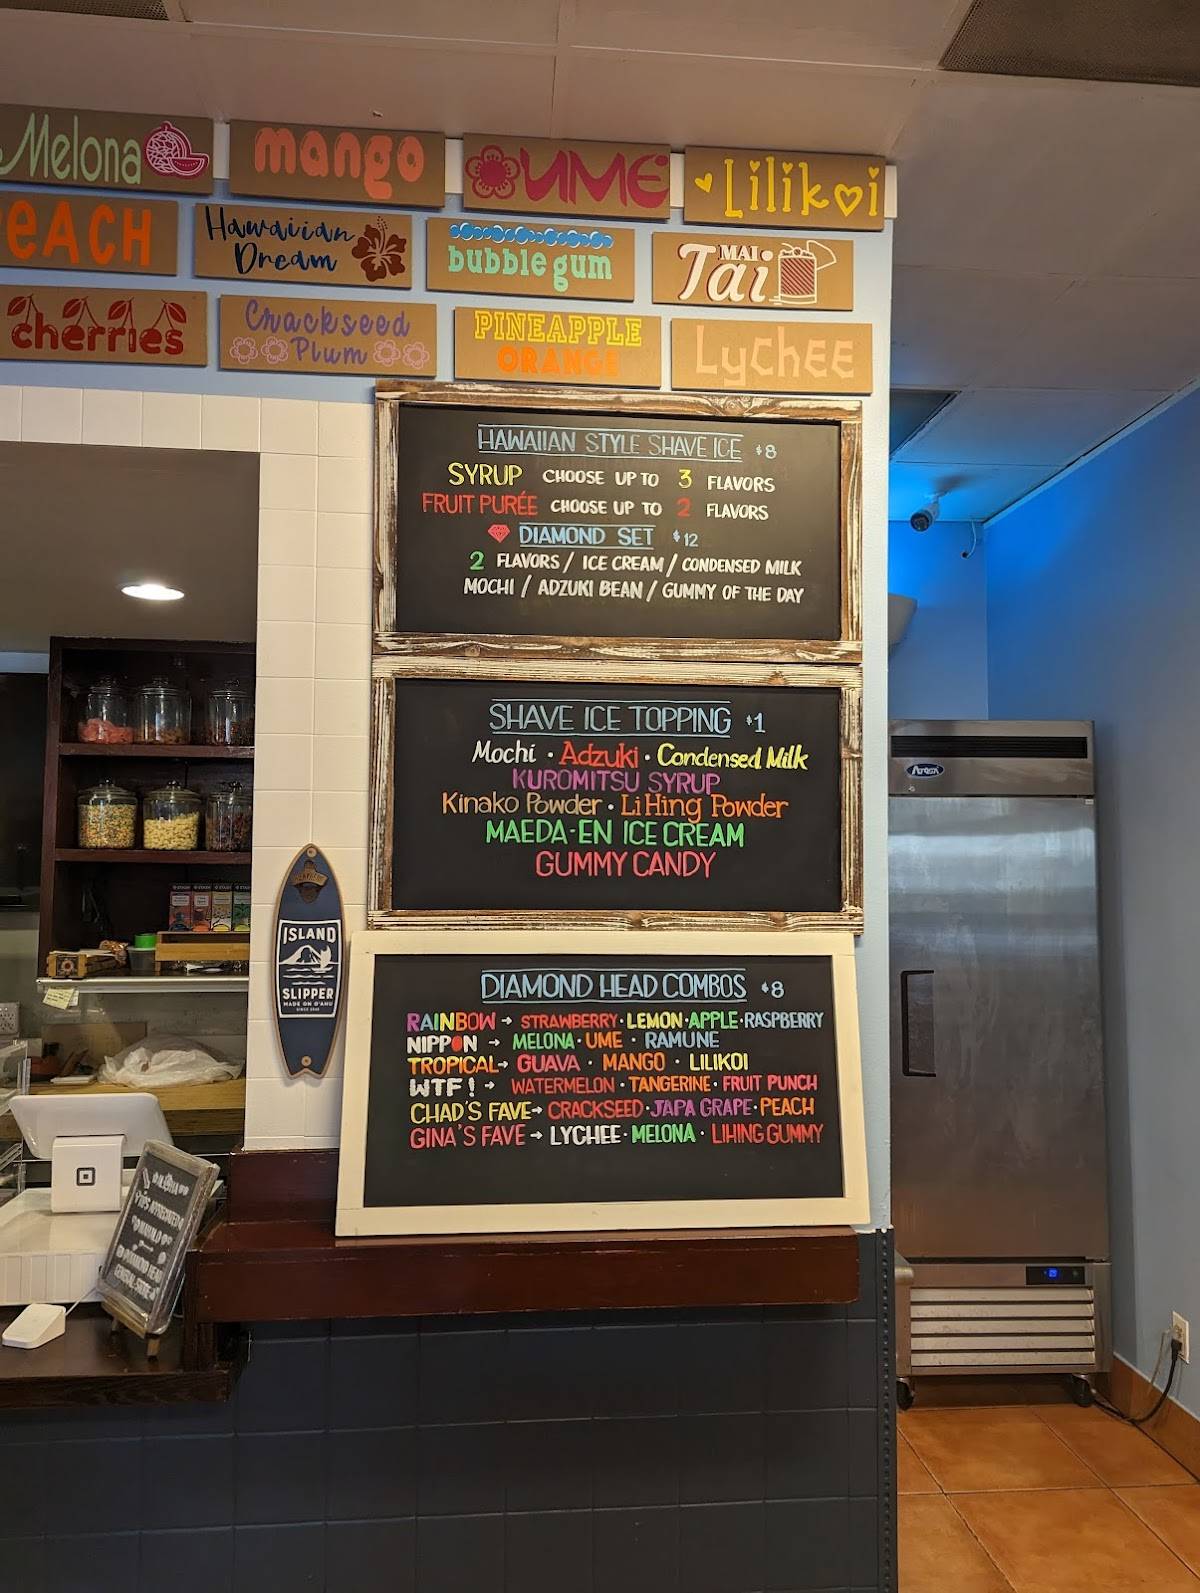 Melona
mango
UME
Lilikoi
PEACH
Hawaiian
Dream
bubble gum
MAI
Tai
cherries
Crackseed
Plum
PINEAPPLE
ORANGE
LyCHEE
HAWAIIAN STYLE SHAVE ICE $8
SYRUP CHOOSE UP TO 3 FLAVORS
FRUIT PURÉE CHOOSE UP TO 2 FLAVORS
DIAMOND SET $12
2 FLAVORS / ICE CREAM / CONDENSED MILK
MOCHI / ADZUKI BEAN / GUMMY OF THE DAY
SHAVE ICE TOPPING $1
Mochi · Adzuki · Condensed Milk
KUROMITSU SYRUP
Kinako Powder · Li Hing Powder
MAEDA-EN ICE CREAM
GUMMY CANDY
DIAMOND HEAD COMBOS $8
RAINBOW → STRAWBERRY · LEMON · APPLE · RASPBERRY
NIPPON → MELONA · UME · RAMUNE
TROPICAL → GUAVA · MANGO · LILIKOI
WTF! → WATERMELON · TANGERINE · FRUIT PUNCH
CHAD'S FAVE → CRACKSEED · JAPA GRAPE · PEACH
GINA'S FAVE → LYCHEE · MELONA · LIHING GUMMY
ISLAND
SLIPPER
MADE ON O'AHU
Atosa
ALOHA
TIPS APPRECIATED
MAHALO
DIAMOND HEAD
GENERAL STORE